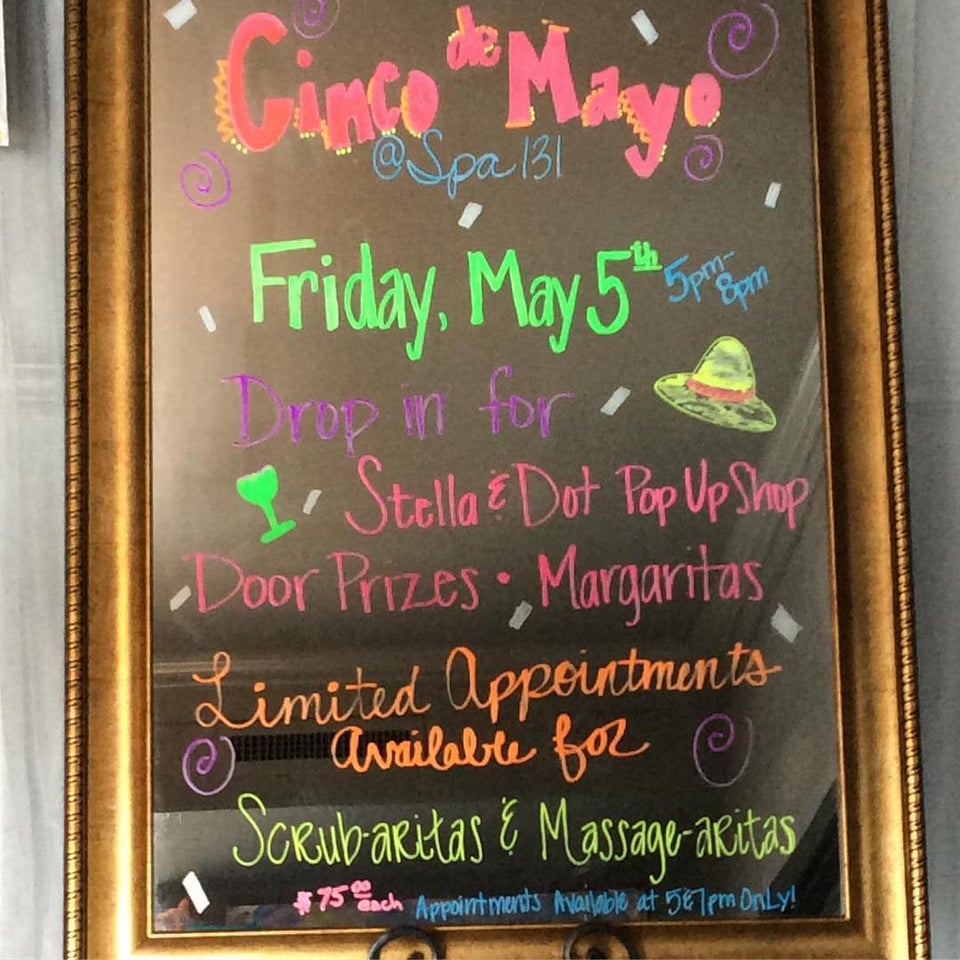 Cinco de Mayo
@Spa 131
Friday, May 5th 5pm-8pm
Drop in for
Stella & Dot Pop Up Shop
Door Prizes • Margaritas
Limited Appointments
Available for
Scrub-aritas & Massage-aritas
$75.00 each Appointments Available at 5&7pm Only!